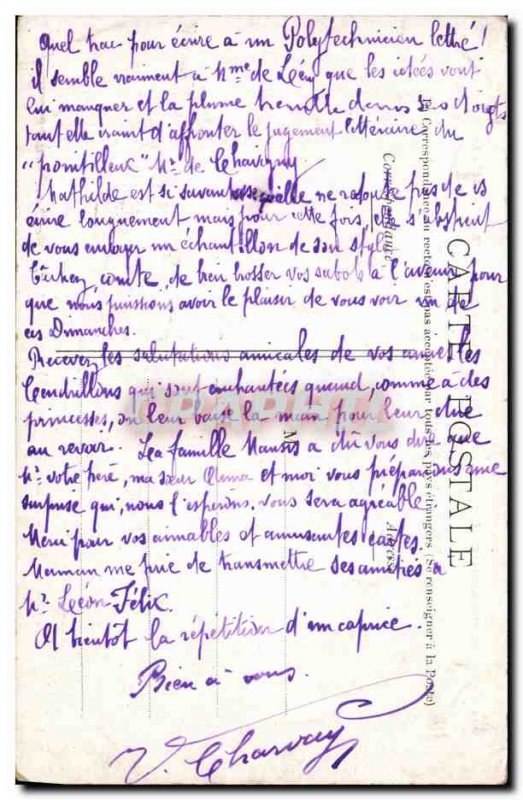 Quel trac pour écrire à un Polytechnicien lettré!
il semble vraiment à Mme de Léry que les idées vont
lui manquer et la plume tremble dans ses doigts
tant elle craint d'affronter le jugement littéraire du
"pointilleux" Mr de Chavigny
Mathilde est si savante qu'elle ne redoute pas de
écrire longuement mais pour cette fois, elle s'abstient
de vous envoyer un échantillon de son style.
Tâchez, comte, de bien bosser vos sabots à l'avenir pour
que nous puissions avoir le plaisir de vous voir un de
ces Dimanches.
Recevez les salutations amicales de vos amies les
Cendrillons qui sont enchantées quand, comme à des
princesses, on leur baise la main pour leur dire
au revoir. La famille a dû vous dire que
Mr votre père, ma sœur et moi vous préparons une
surprise qui, nous l'espérons, vous sera agréable.
Merci pour vos aimables et amusantes cartes.
Maman me prie de transmettre ses amitiés à
Mr Léon Félix.
A bientôt la répétition d'un caprice.
Bien à vous.
V. Charvay
CARTE POSTALE
Correspondance
Adresse
M
La Correspondance du recto n'est pas acceptée par tous les pays étrangers (Se renseigner à la Poste)